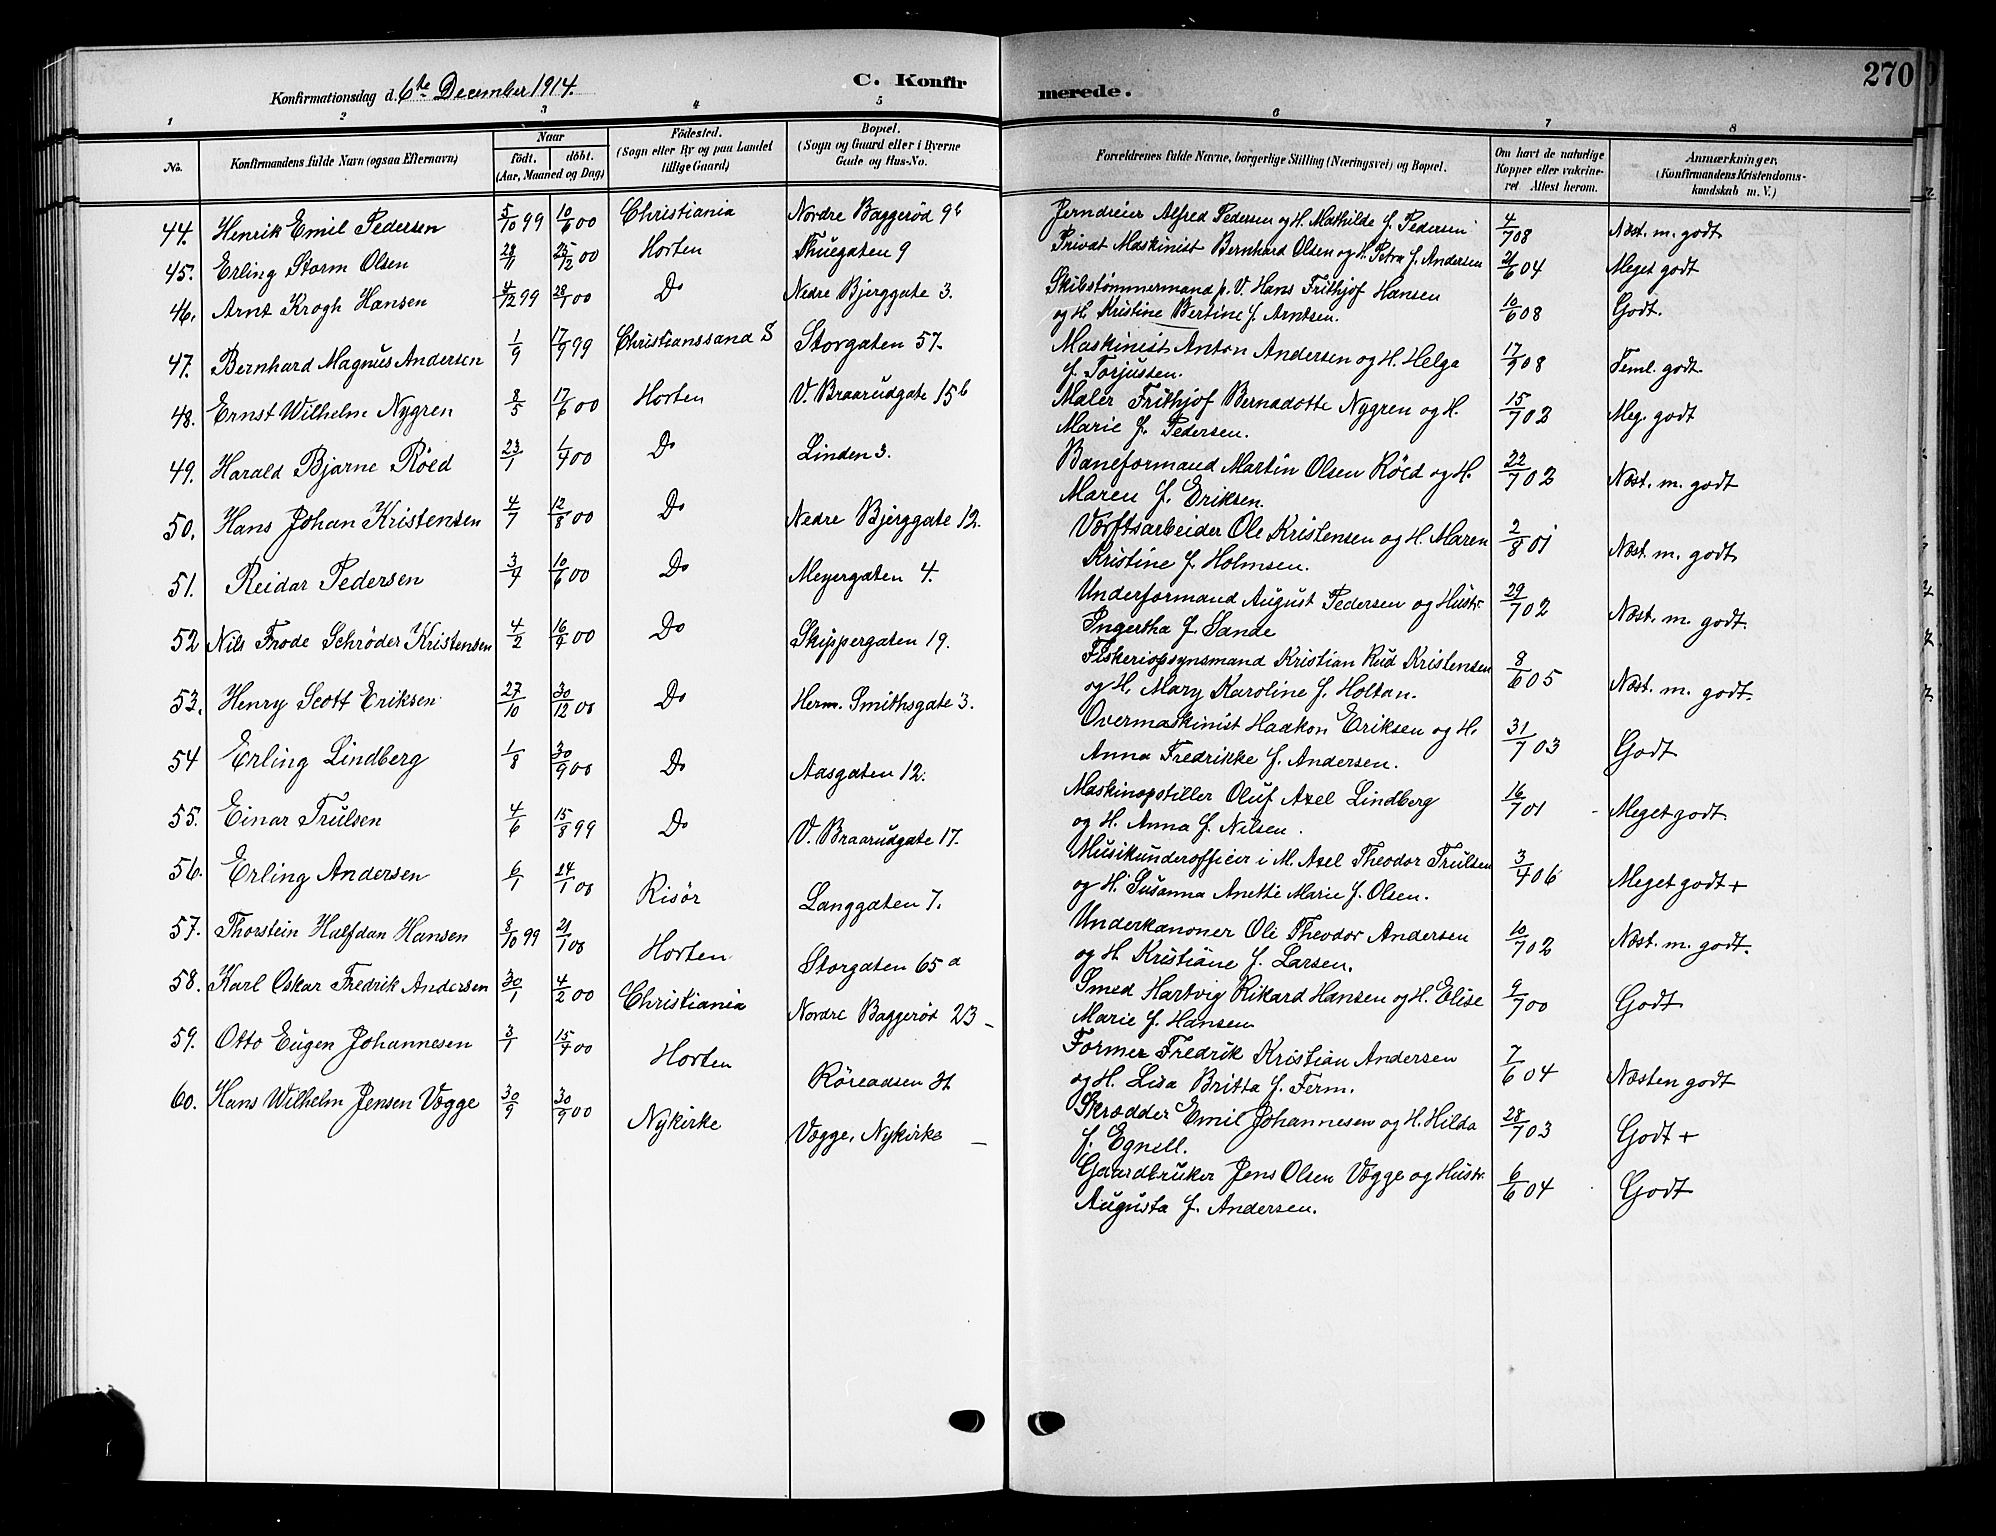 270
Konfirmationsdag d. 6te December 1914.
C. Konfirmerede.
1 2 3 4 5 6 7 8
No.
Konfirmandens fulde Navn (ogsaa Efternavn)
Naar
födt. döbt.
(Aar, Maaned og Dag)
Födested.
(Sogn eller By og paa Landet
tillige Gaard)
Bopæl.
(Sogn og Gaard eller i Byerne
Gade og Hus-No.
Forældrenes fulde Navne, borgerlige Stilling (Næringsvei) og Bopæl.
Om havt de naturlige
Kopper eller vakcine-
ret Attest herom.
Anmærkninger.
(Konfirmandens Kristendoms-
kundskab m. V.)
44. Henrik Emil Pedersen 5/10 99 10/6 00 Christiania Nordre Baggerød 9b Jerndreier Alfred Pedersen og H. Mathilde f. Pedersen 4/7 08 Næst. m. godt
45. Erling Storm Olsen 28/11 25/12 00 Horten Thuegaten 9 Privat Maskinist Bernhard Olsen og H. Petra f. Andersen 21/6 04 Meget godt
46. Arnt Krogh Hansen 4/12 99 28/1 00 Do Nedre Bjerggate 3. Skibstømmermand p. V. Hans Frithjof Hansen
og H. Kristine Bertine f. Arntsen. 10/6 08 Godt.
47. Bernhard Magnus Andersen 1/9 17/9 99 Christianssand S Storgaten 57. Maskinist Anton Andersen og H. Helga
f. Torjussen. 17/9 08 Teml. godt.
48. Ernst Wilhelm Nygren 8/5 17/6 00 Horten V. Braarudgate 15b Maler Frithjof Bernadotte Nygren og H.
Marie f. Pedersen. 15/7 02 Meg. godt
49. Harald Bjarne Röed 23/1 1/4 00 Do Linden 3. Baneformand Martin Olsen Röed og H.
Maren f. Eriksen. 22/7 02 Næst. m. godt
50. Hans Johan Kristensen 4/7 12/8 00 Do Nedre Bjerggate 12. Værftsarbeider Ole Kristensen og H. Maren
Kristine f. Holmsen. 2/8 01 Næst. m. godt
51. Reidar Pedersen 3/4 10/6 00 Do Meyergaten 4. Underformand August Pedersen og Hustr.
Ingertha f. Sande 29/7 02 Næst. m. godt.
52 Nils Frode Schrøder Kristensen 4/2 16/4 00 Do Skippergaten 19. Fiskeriopsynsmand Kristian Rud Kristensen
og H. Mary Karoline f. Holtan. 8/6 05 Næst. m. godt.
53. Henry Scott Eriksen 27/10 30/12 00 Do Herm. Smithsgate 3. Overmaskinist Haakon Eriksen og H.
Anna Fredrikke f. Andersen. 31/7 03 Godt
54 Erling Lindberg 1/8 30/9 00 Do Aasgaten 12. Maskinopstiller Oluf Axel Lindberg
og H. Anna f. Nilsen. 16/7 01 Meget godt.
55. Einar Trulsen 4/6 15/8 99 Do V. Braarudgate 17. Musikunderofficer i M. Axel Theodor Trulsen
og H. Susanna Anette Marie f. Olsen. 3/4 06 Meget godt +
56. Erling Andersen 6/1 14/1 00 Risör Langgaten 7. Underkanoner Ole Theodor Andersen
og H. Kristiane f. Larsen. 10/7 02 Næst. m. godt.
57. Thorstein Halfdan Hansen 8/10 99 21/1 00 Horten Storgaten 65a Smed Hartvig Rikard Hansen og H. Elise
Marie f. Hansen 9/7 00 Godt
58. Karl Oskar Fredrik Andersen 30/1 4/2 00 Christiania Nordre Baggerød 23 – Former Fredrik Kristian Andersen
og H. Lisa Britta f. Ferm. 7/6 04 Næsten godt
59. Otto Eugen Johannesen 3/1 15/4 00 Horten Röreaasen 31 Skrædder Emil Johannesen og H. Hilda
f. Egnell. 28/7 03 Godt +
60. Hans Wilhelm Jensen Vægge 30/9 30/9 00 Nykirke Vægge, Nykirke – Gaardbruker Jens Olsen Vægge og Hustr.
Augusta f. Andersen. 6/6 04 Godt